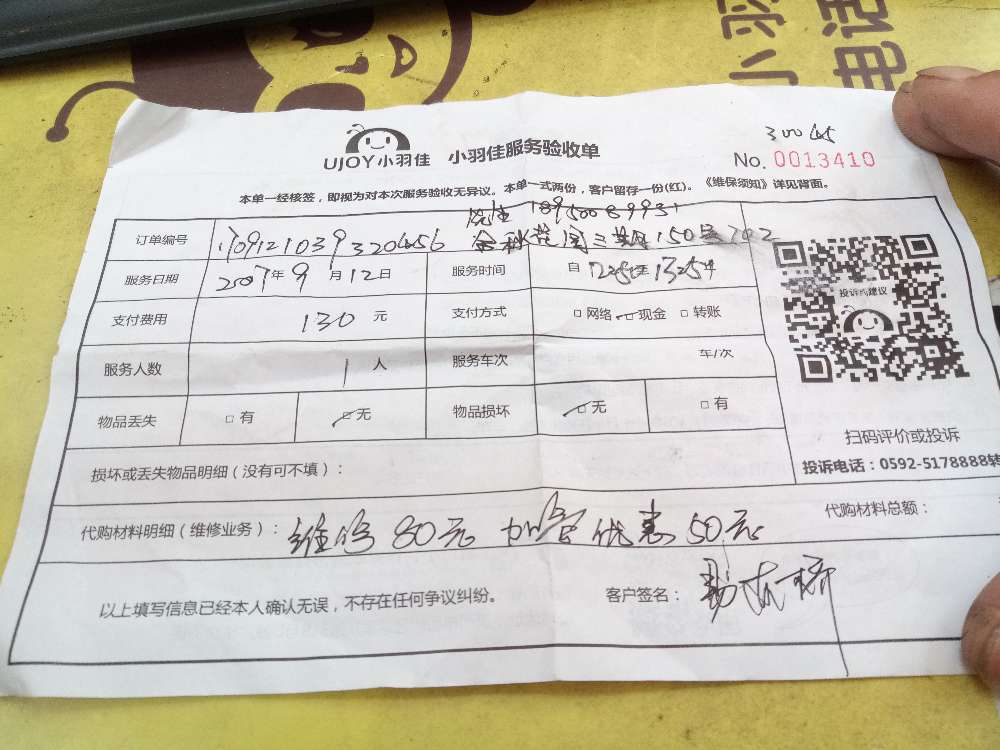 小羽
电话
300 45
UJOY小羽佳 小羽佳服务验收单
No. 0013410
本单一经核签，即视为对本次服务验收无异议。本单一式两份，客户留存一份(红)。《维保须知》详见背面。
订单编号 1709121039320456
服务日期 2007年9月12日 服务时间 自
支付费用 130 元 支付方式 □网络 □现金 □转账
服务人数 1 人 服务车次 车/次
物品丢失 □有 □无 物品损坏 □无 □有
投诉或建议
扫码评价或投诉
投诉电话：0592-5178888转
损坏或丢失物品明细（没有可不填）：
代购材料明细（维修业务）： 维修80元 加管优惠50元 代购材料总额：
以上填写信息已经本人确认无误，不存在任何争议纠纷。 客户签名：